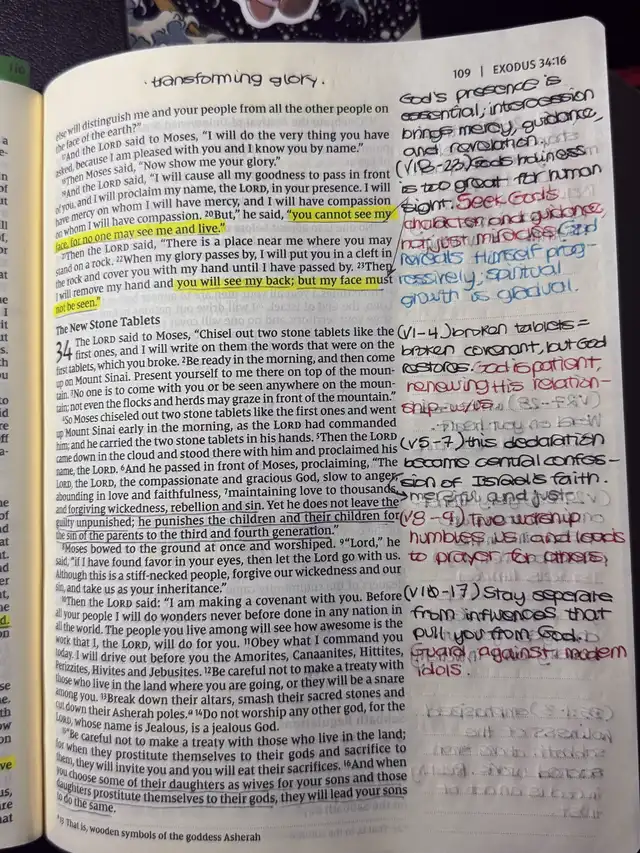 · transforming glory ·
109 | EXODUS 34:16
else will distinguish me and your people from all the other people on
the face of the earth?"
¹⁷And the LORD said to Moses, "I will do the very thing you have
asked, because I am pleased with you and I know you by name."
¹⁸Then Moses said, "Now show me your glory."
¹⁹And the LORD said, "I will cause all my goodness to pass in front
of you, and I will proclaim my name, the LORD, in your presence. I will
have mercy on whom I will have mercy, and I will have compassion
on whom I will have compassion. ²⁰But," he said, "you cannot see my
face, for no one may see me and live."
²¹Then the LORD said, "There is a place near me where you may
stand on a rock. ²²When my glory passes by, I will put you in a cleft in
the rock and cover you with my hand until I have passed by. ²³Then
I will remove my hand and you will see my back; but my face must
not be seen."
The New Stone Tablets
34 The LORD said to Moses, "Chisel out two stone tablets like the
first ones, and I will write on them the words that were on the
first tablets, which you broke. ²Be ready in the morning, and then come
up on Mount Sinai. Present yourself to me there on top of the moun-
tain. ³No one is to come with you or be seen anywhere on the moun-
tain; not even the flocks and herds may graze in front of the mountain."
⁴So Moses chiseled out two stone tablets like the first ones and went
up Mount Sinai early in the morning, as the LORD had commanded
him; and he carried the two stone tablets in his hands. ⁵Then the LORD
came down in the cloud and stood there with him and proclaimed his
name, the LORD. ⁶And he passed in front of Moses, proclaiming, "The
LORD, the LORD, the compassionate and gracious God, slow to anger,
abounding in love and faithfulness, ⁷maintaining love to thousands,
and forgiving wickedness, rebellion and sin. Yet he does not leave the
guilty unpunished; he punishes the children and their children for
the sin of the parents to the third and fourth generation."
⁸Moses bowed to the ground at once and worshiped. ⁹"Lord," he
said, "if I have found favor in your eyes, then let the Lord go with us.
Although this is a stiff-necked people, forgive our wickedness and our
sin, and take us as your inheritance."
¹⁰Then the LORD said: "I am making a covenant with you. Before
all your people I will do wonders never before done in any nation in
all the world. The people you live among will see how awesome is the
work that I, the LORD, will do for you. ¹¹Obey what I command you
today. I will drive out before you the Amorites, Canaanites, Hittites,
Perizzites, Hivites and Jebusites. ¹²Be careful not to make a treaty with
those who live in the land where you are going, or they will be a snare
among you. ¹³Break down their altars, smash their sacred stones and
cut down their Asherah poles.ᵃ ¹⁴Do not worship any other god, for the
LORD, whose name is Jealous, is a jealous God.
¹⁵"Be careful not to make a treaty with those who live in the land;
for when they prostitute themselves to their gods and sacrifice to
them, they will invite you and you will eat their sacrifices. ¹⁶And when
you choose some of their daughters as wives for your sons and those
daughters prostitute themselves to their gods, they will lead your sons
to do the same.
ᵃ 13 That is, wooden symbols of the goddess Asherah
God's presence is
essential; intercession
brings mercy, guidance,
and revelation.
(V18-23) God's holiness
is too great for human
sight. Seek God's
character and guidance,
not just miracles. God
reveals Himself prog-
ressively, spiritual
growth is gradual.
(V1-4) broken tablets =
broken covenant, but God
restores. God is patient,
renewing His relation-
ship w/us.
(V5-7) this declaration
become central confes-
sion of Israel's faith.
→ merciful and just
(V8-9) True worship
humbles us and leads
to prayer for others.
(V10-17) Stay seperate
from influences that
pull you from God.
Guard against modern
idols.